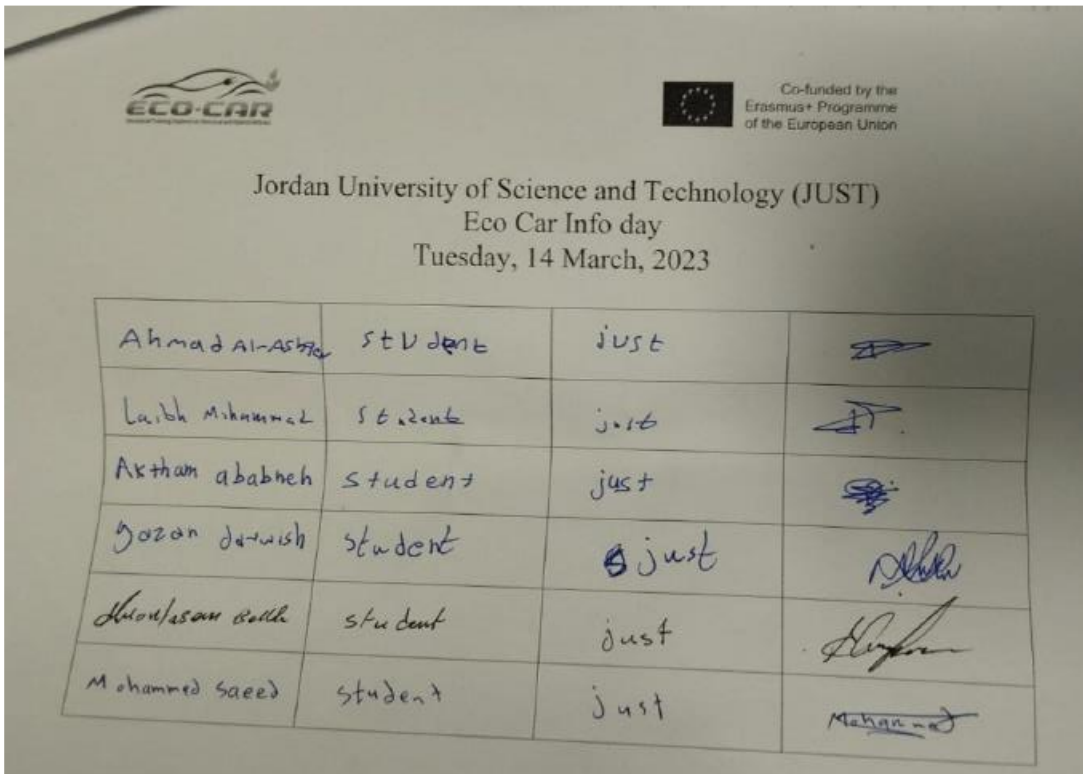 ECO-CAR
Co-funded by the
Erasmus+ Programme
of the European Union
Jordan University of Science and Technology (JUST)
Eco Car Info day
Tuesday, 14 March, 2023
Ahmad student just
Laibh Mohammad student just
Aktham ababneh student just
yazan darwish student just
student just
Mohammed Saeed student just Mohammed